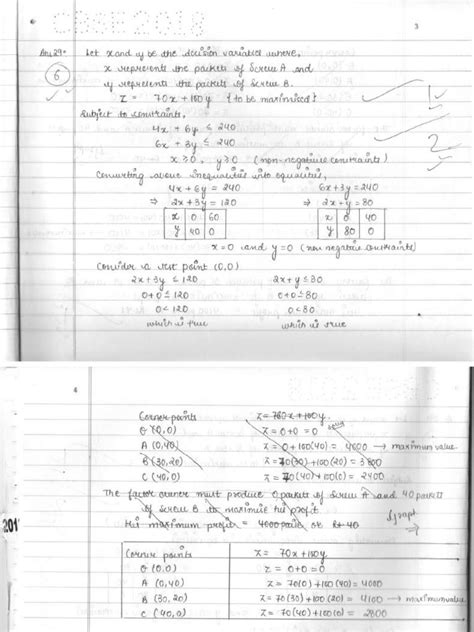 CBSE 2018
3
Ans 29.
6
Let x and y be the decision variables where,
x represents the packets of Screw A and
y represents the packets of Screw B.
Z = 70x + 100y {to be maximised}
1
Subject to constraints,
4x + 6y ≤ 240
6x + 3y ≤ 240
2
x ≥ 0, y ≥ 0 (non-negative constraints)
Converting above inequalities into equalities,
4x + 6y = 240 6x + 3y = 240
⇒ 2x + 3y = 120 ⇒ 2x + y = 80
x 0 60 x 0 40
y 40 0 y 80 0
x = 0 and y = 0 (non negative constraints)
Consider a test point (0,0)
2x + 3y ≤ 120 2x + y ≤ 80
0+0 ≤ 120 0+0 ≤ 80
0 < 120 0 < 80
which is true which is true
4
Corner points Z = 100y
O (0,0) Z = 0+0 = 0
A (0,40) Z = 0+100(40) = 4000 → maximum value
B (30,20) Z = 70(30)+100(20) = 3800
C (40,0) Z = 70(40)+100(0) = 2400
The factory owner must produce 0 packets of Screw A and 40 packets
of Screw B to maximise his profit
His maximum profit = 4000 paise or Rs 40
graph
201
Corner points Z = 70x + 100y
O (0,0) Z = 0+0 = 0
A (0,40) Z = 70(0)+100(40) = 4000
B (30,20) Z = 70(30)+100(20) = 4100 → maximum value
C (40,0) Z = 70(40)+100(0) = 2800